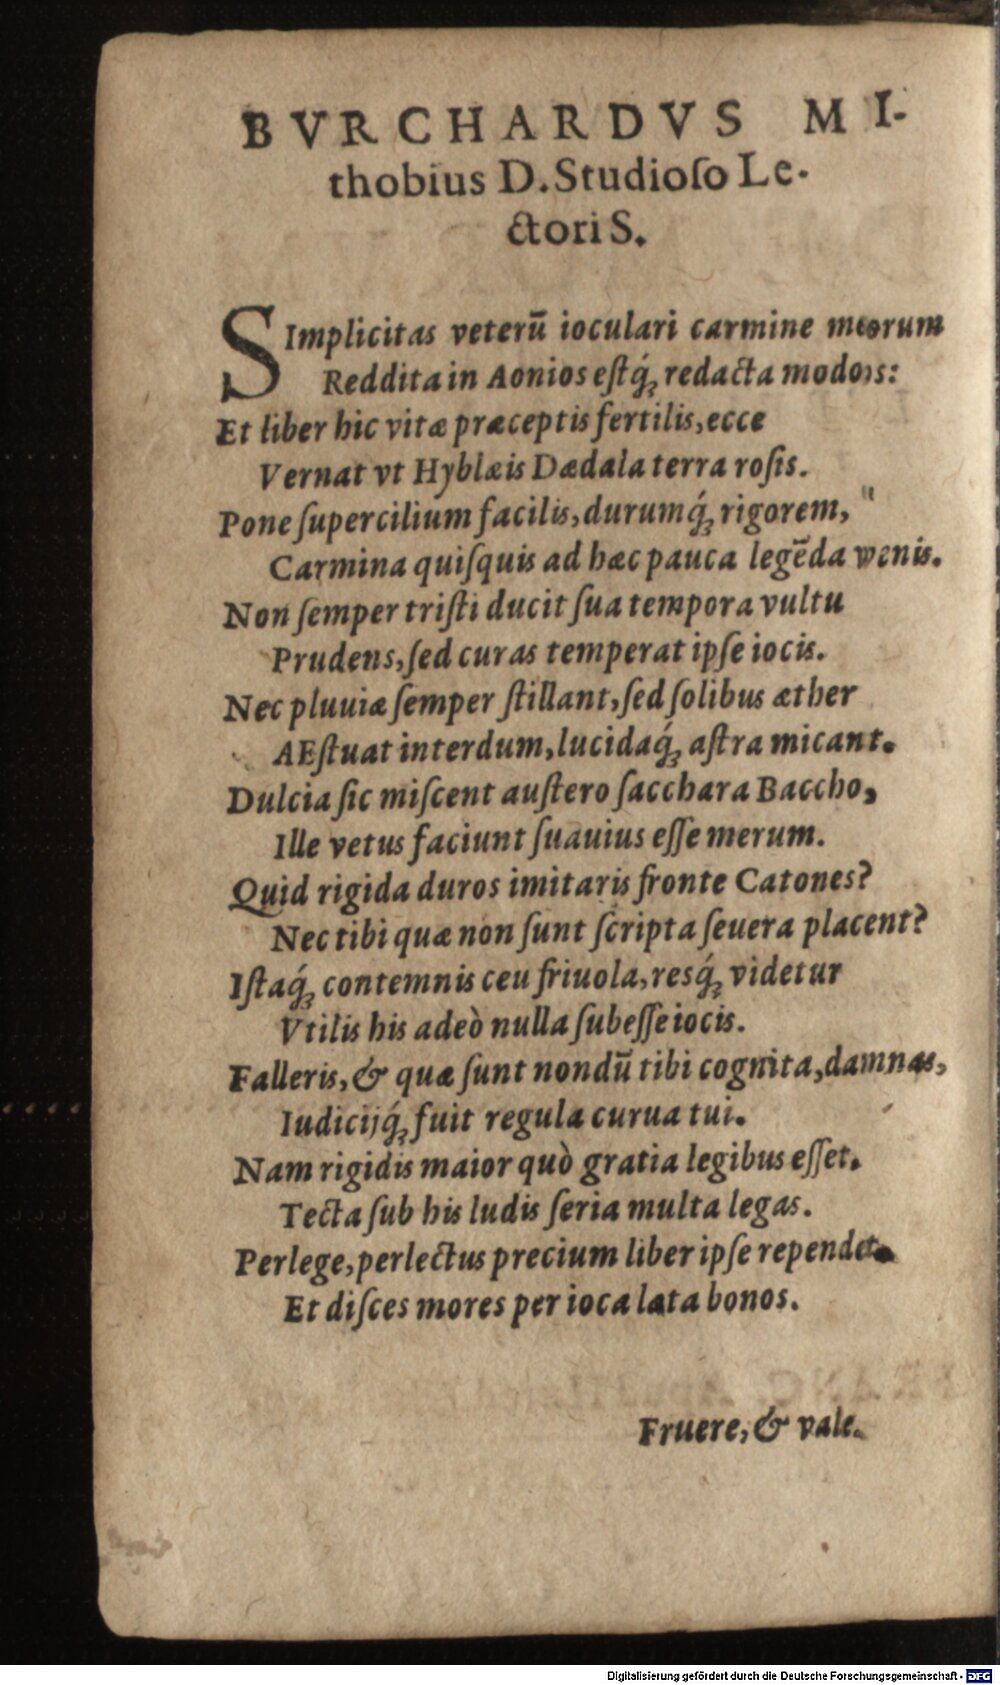 BVRCHARDVS MI-
thobius D. Studioſo Le-
ctori S.
SImplicitas veterū ioculari carmine morum
Reddita in Aonios eſtq́; redacta modos:
Et liber hic vitæ præceptis fertilis, ecce
Vernat vt Hyblæis Dædala terra roſis.
Pone ſupercilium facilis, durumq́; rigorem,
Carmina quiſquis ad hæc pauca legēda venis.
Non ſemper triſti ducit ſua tempora vultu
Prudens, ſed curas temperat ipſe iocis.
Nec pluuiæ ſemper ſtillant, ſed ſolibus æther
AEſtuat interdum, lucidaq́; aſtra micant.
Dulcia ſic miſcent auſtero ſacchara Baccho,
Ille vetus faciunt ſuauius eſſe merum.
Quid rigida duros imitaris fronte Catones?
Nec tibi quæ non ſunt ſcripta ſeuera placent?
Iſtaq́; contemnis ceu friuola, resq́; videtur
Vtilis his adeò nulla ſubeſſe iocis.
Falleris, & quæ ſunt nondū tibi cognita, damnas,
Iudicijq́; fuit regula curua tui.
Nam rigidis maior quò gratia legibus eſſet,
Tecta ſub his ludis ſeria multa legas.
Perlege, perlectus precium liber ipſe rependet.
Et diſces mores per ioca lata bonos.
Fruere, & vale.
Digitalisierung gefördert durch die Deutsche Forschungsgemeinschaft - DFG